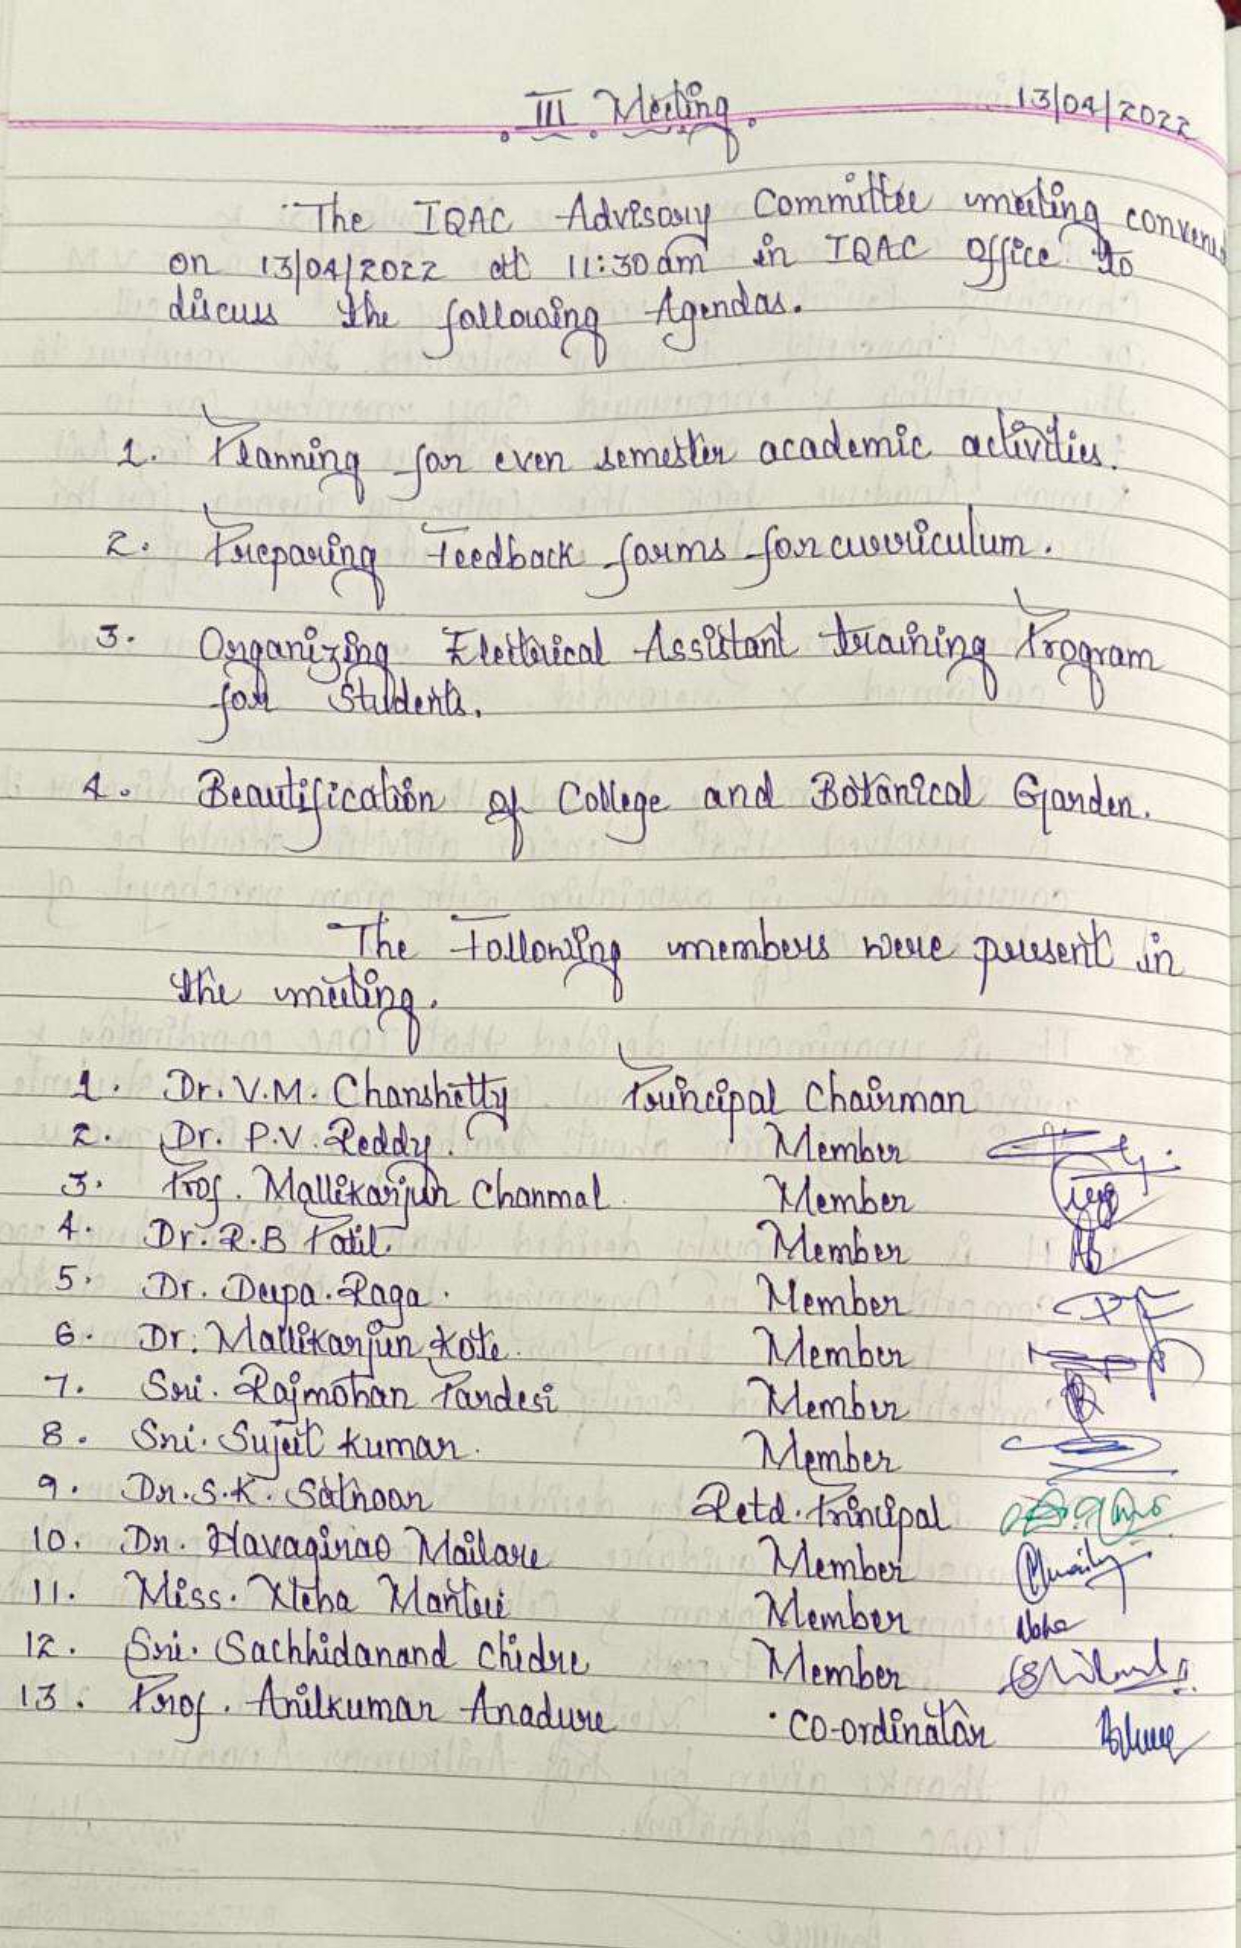 III Meeting
13/04/2022
The IQAC Advisory Committee meeting convened
on 13/04/2022 at 11:30am in IQAC office to
discuss the following Agendas.
1. Planning for even semester academic activities.
2. Preparing Feedback forms for curriculum.
3. Organizing Electrical Assistant training Program
for Students.
4. Beautification of College and Botanical Garden.
The Following members were present in
the meeting.
1. Dr. V.M. Chanshetty Principal Chairman
2. Dr. P.V. Reddy. Member
3. Prof. Mallikarjun Chanmal. Member
4. Dr. R.B Patil. Member
5. Dr. Deepa. Raga. Member
6. Dr. Mallikarjun Kote. Member
7. Sri. Rajmohan Pardesi Member
8. Sri. Sujeet Kumar. Member
9. Dr. S.K. Satnoor Retd. Principal
10. Dr. Havaginao Mailare Member
11. Miss. Neha Mantri Member Neha
12. Sri. Sachhidanand Chidre Member
13. Prof. Anilkumar Anadure Co-ordinator